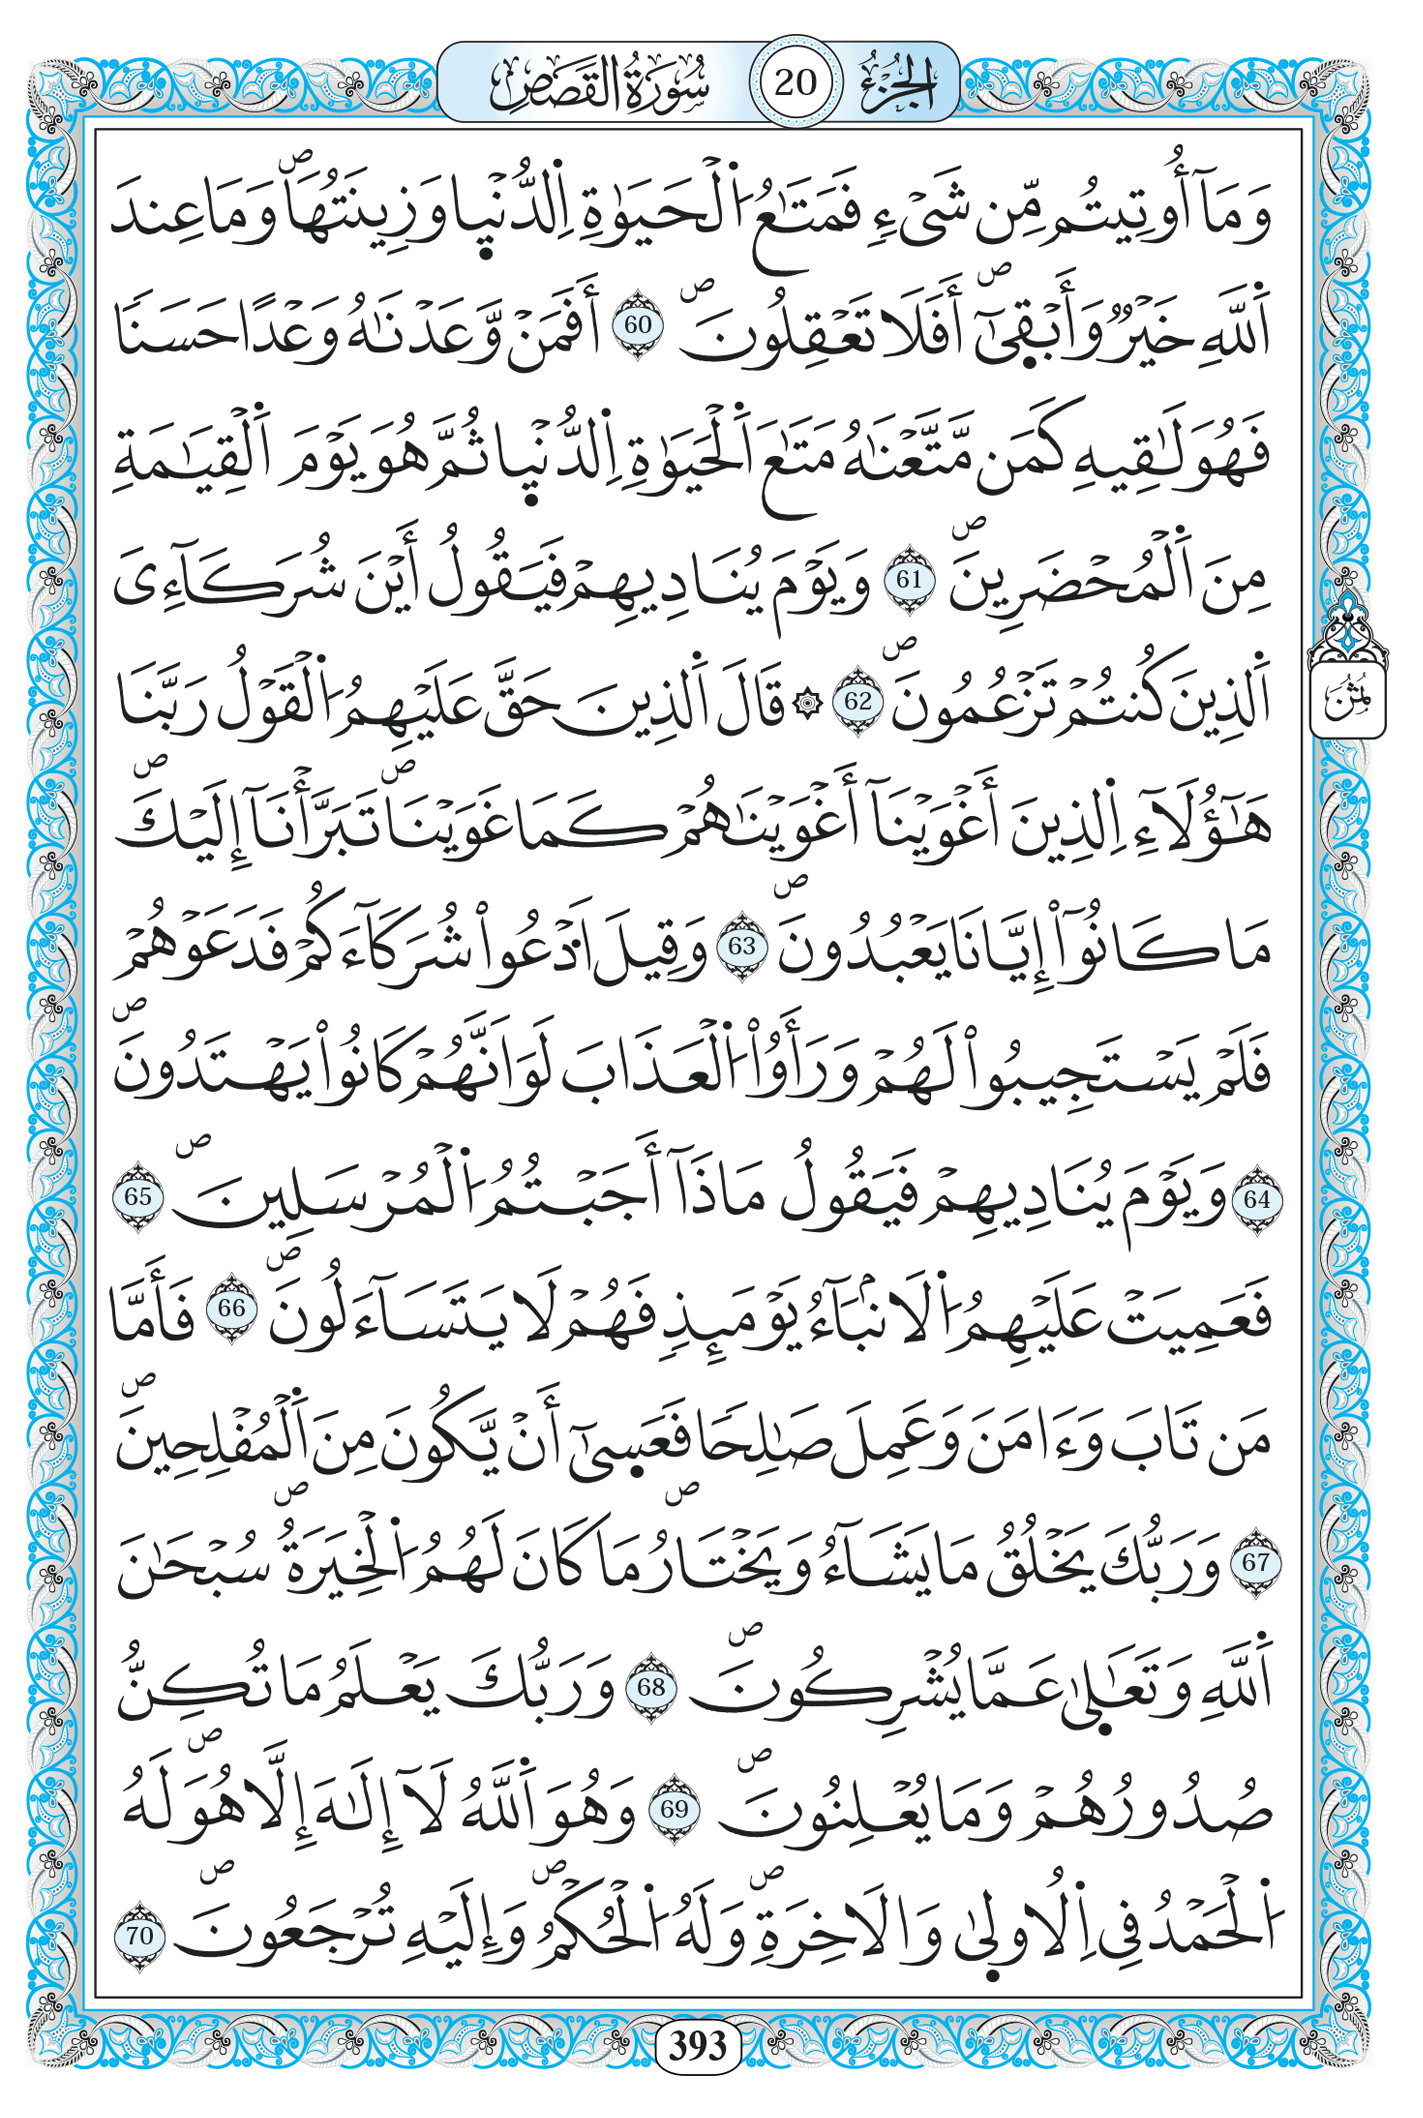 الجزء 20 سورة القصص
وَمَآ أُوتِيتُم مِّن شَيْءٖ فَمَتَٰعُ اُ۬لْحَيَوٰةِ اِ۬لدُّنْي۪ا وَزِينَتُهَاۖ وَمَا عِندَ
اَ۬للَّهِ خَيْرٞ وَأَبْق۪ىٰٓۖ أَفَلَا تَعْقِلُونَۖ 60 أَفَمَنْ وَّعَدْنَٰهُ وَعْداً حَسَناٗ
فَهُوَ لَٰقِيهِ كَمَن مَّتَّعْنَٰهُ مَتَٰعَ اَ۬لْحَيَوٰةِ اِ۬لدُّنْي۪ا ثُمَّ هُوَ يَوْمَ اَ۬لْقِيَٰمَةِ
مِنَ اَ۬لْمُحْضَرِينَۖ 61 وَيَوْمَ يُنَادِيهِمْ فَيَقُولُ أَيْنَ شُرَكَآءِيَ
اَ۬لذِينَ كُنتُمْ تَزْعُمُونَۖ 62 ۞ قَالَ اَ۬لذِينَ حَقَّ عَلَيْهِمُ اُ۬لْقَوْلُ رَبَّنَا
هَٰٓؤُلَآءِ اِ۬لذِينَ أَغْوَيْنَآ أَغْوَيْنَٰهُمْ كَمَا غَوَيْنَاۖ تَبَرَّأْنَآ إِلَيْكَۖ
مَا كَانُوٓاْ إِيَّانَا يَعْبُدُونَۖ 63 وَقِيلَ اَ۟دْعُواْ شُرَكَآءَكُمْ فَدَعَوْهُمْ
فَلَمْ يَسْتَجِيبُواْ لَهُمْ وَرَأَوُاْ اُ۬لْعَذَابَ لَوَ اَنَّهُمْ كَانُواْ يَهْتَدُونَۖ
64 وَيَوْمَ يُنَادِيهِمْ فَيَقُولُ مَاذَآ أَجَبْتُمُ اُ۬لْمُرْسَلِينَۖ 65
فَعَمِيَتْ عَلَيْهِمُ اُ۬لَانۢبَآءُ يَوْمَئِذٖ فَهُمْ لَا يَتَسَآءَلُونَۖ 66 فَأَمَّا
مَن تَابَ وَءَامَنَ وَعَمِلَ صَٰلِحاٗ فَعَس۪ىٰٓ أَنْ يَّكُونَ مِنَ اَ۬لْمُفْلِحِينَۖ
67 وَرَبُّكَ يَخْلُقُ مَا يَشَآءُ وَيَخْتَارُۖ مَا كَانَ لَهُمُ اُ۬لْخِيَرَةُۖ سُبْحَٰنَ
اَ۬للَّهِ وَتَعَٰل۪ىٰ عَمَّا يُشْرِكُونَۖ 68 وَرَبُّكَ يَعْلَمُ مَا تُكِنُّ
صُدُورُهُمْ وَمَا يُعْلِنُونَۖ 69 وَهُوَ اَ۬للَّهُ لَآ إِلَٰهَ إِلَّا هُوَۖ لَهُ
اُ۬لْحَمْدُ فِي اِ۬لُاول۪ىٰ وَالَاخِرَةِۖ وَلَهُ اُ۬لْحُكْمُۖ وَإِلَيْهِ تُرْجَعُونَۖ 70
ثُمُن
393